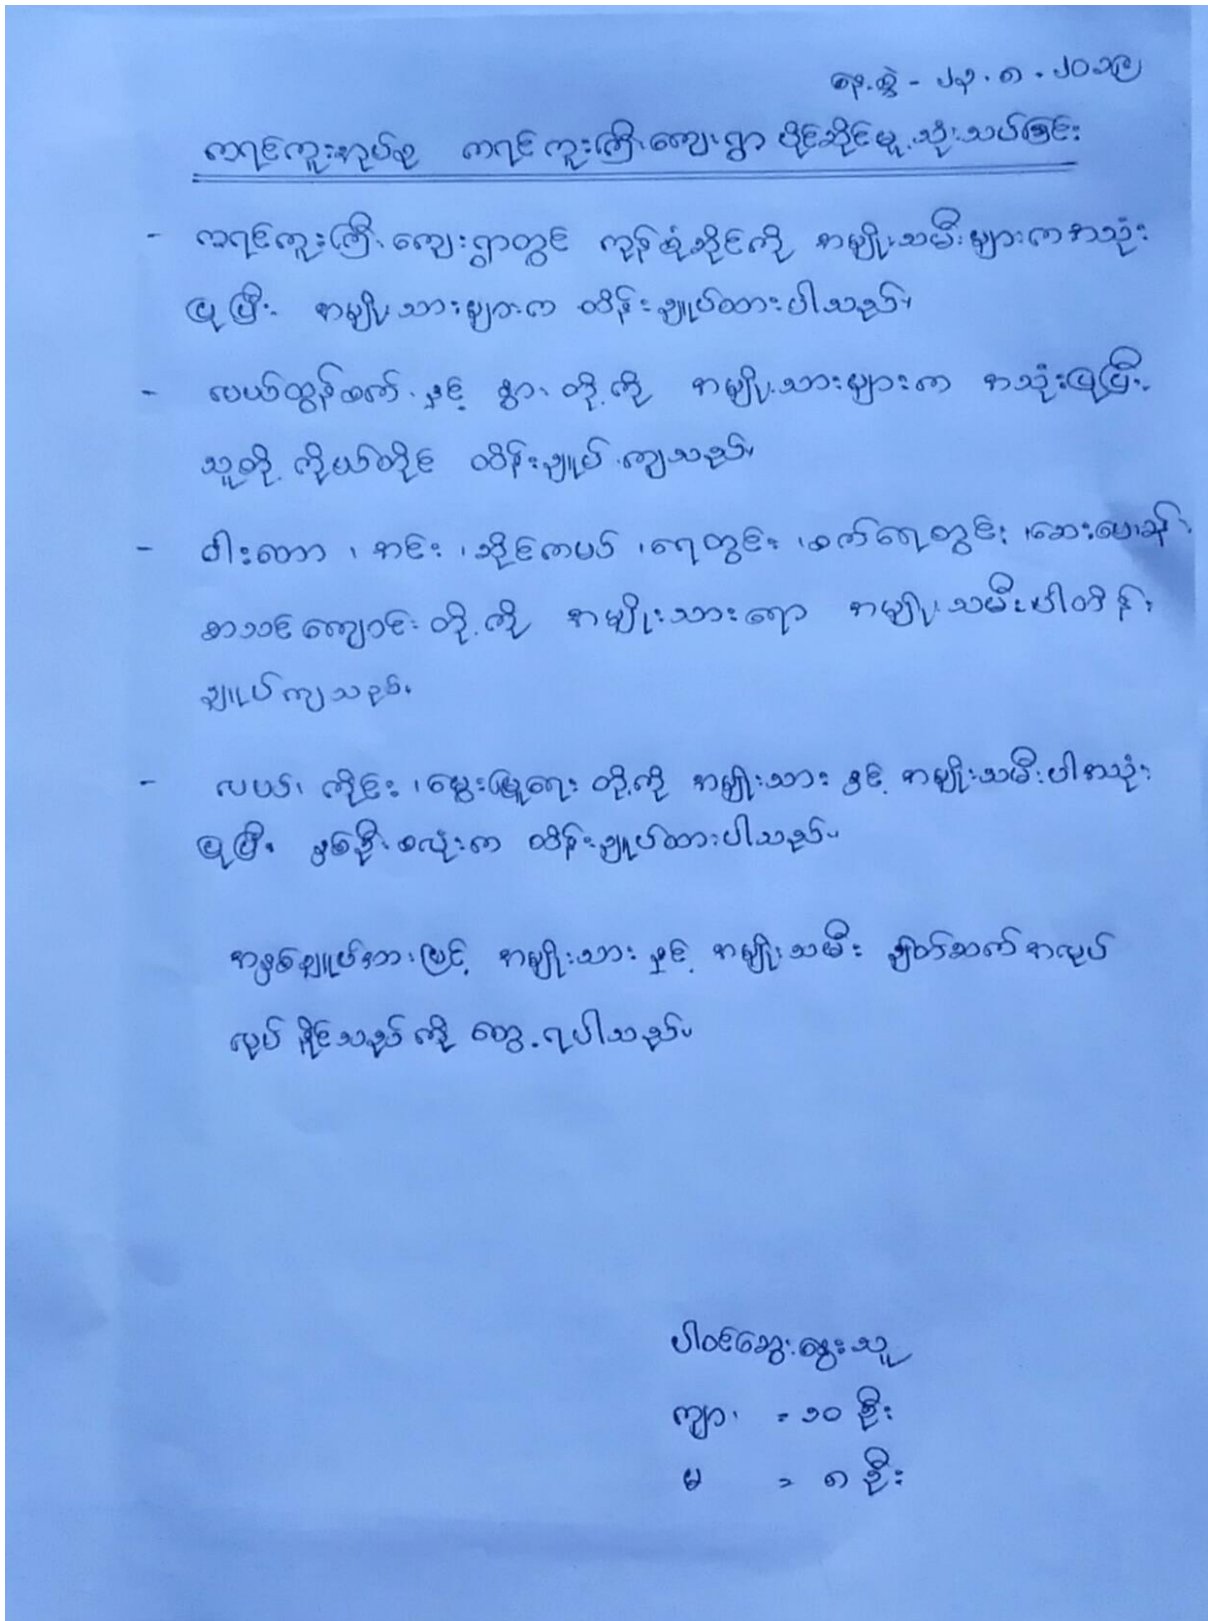 နေ့စွဲ - ၂၃.၈.၂၀၁၉
ကရင်ကူးအုပ်စု ကရင်ကူးကြီးကျေးရွာ ပိုင်ဆိုင်မှု့သုံးသပ်ခြင်း
- ကရင်ကူးကြီးကျေးရွာတွင် ကုန်စုံဆိုင်ကို အမျိုးသမီးများကအသုံး
ပြုပြီး အမျိုးသားများက ထိန်းချုပ်ထားပါသည်။
- လယ်ထွန်စက် နှင့် နွား တို့ကို အမျိုးသားများက အသုံးပြုပြီး
သူတို့ ကိုယ်တိုင် ထိန်းချုပ်ကျသည်။
- ဝါးတော ၊ အင်း ၊ ဆိုင်ကယ် ၊ ရေတွင်း ၊ စက်ရေတွင်း ၊ ဆေးပေးခန်း
စာသင်ကျောင်း တို့ကို အမျိုးသားရော အမျိုးသမီးပါထိန်း
ချုပ်ကျသည်။
- လယ်၊ ကိုင်း ၊ မွေးမြူရေး တို့ကို အမျိုးသား နှင့် အမျိုးသမီးပါအသုံး
ပြုပြီး နှစ်ဦးစလုံးက ထိန်းချုပ်ထားပါသည်။
အနှစ်ချုပ်အားဖြင့် အမျိုးသား နှင့် အမျိုးသမီး ချိတ်ဆက်အလုပ်
လုပ်နိုင်သည်ကို တွေ့ရပါသည်။
ပါဝင်ဆွေးနွေးသူ
ကျား = ၁၀ ဦး
မ = ၈ ဦး